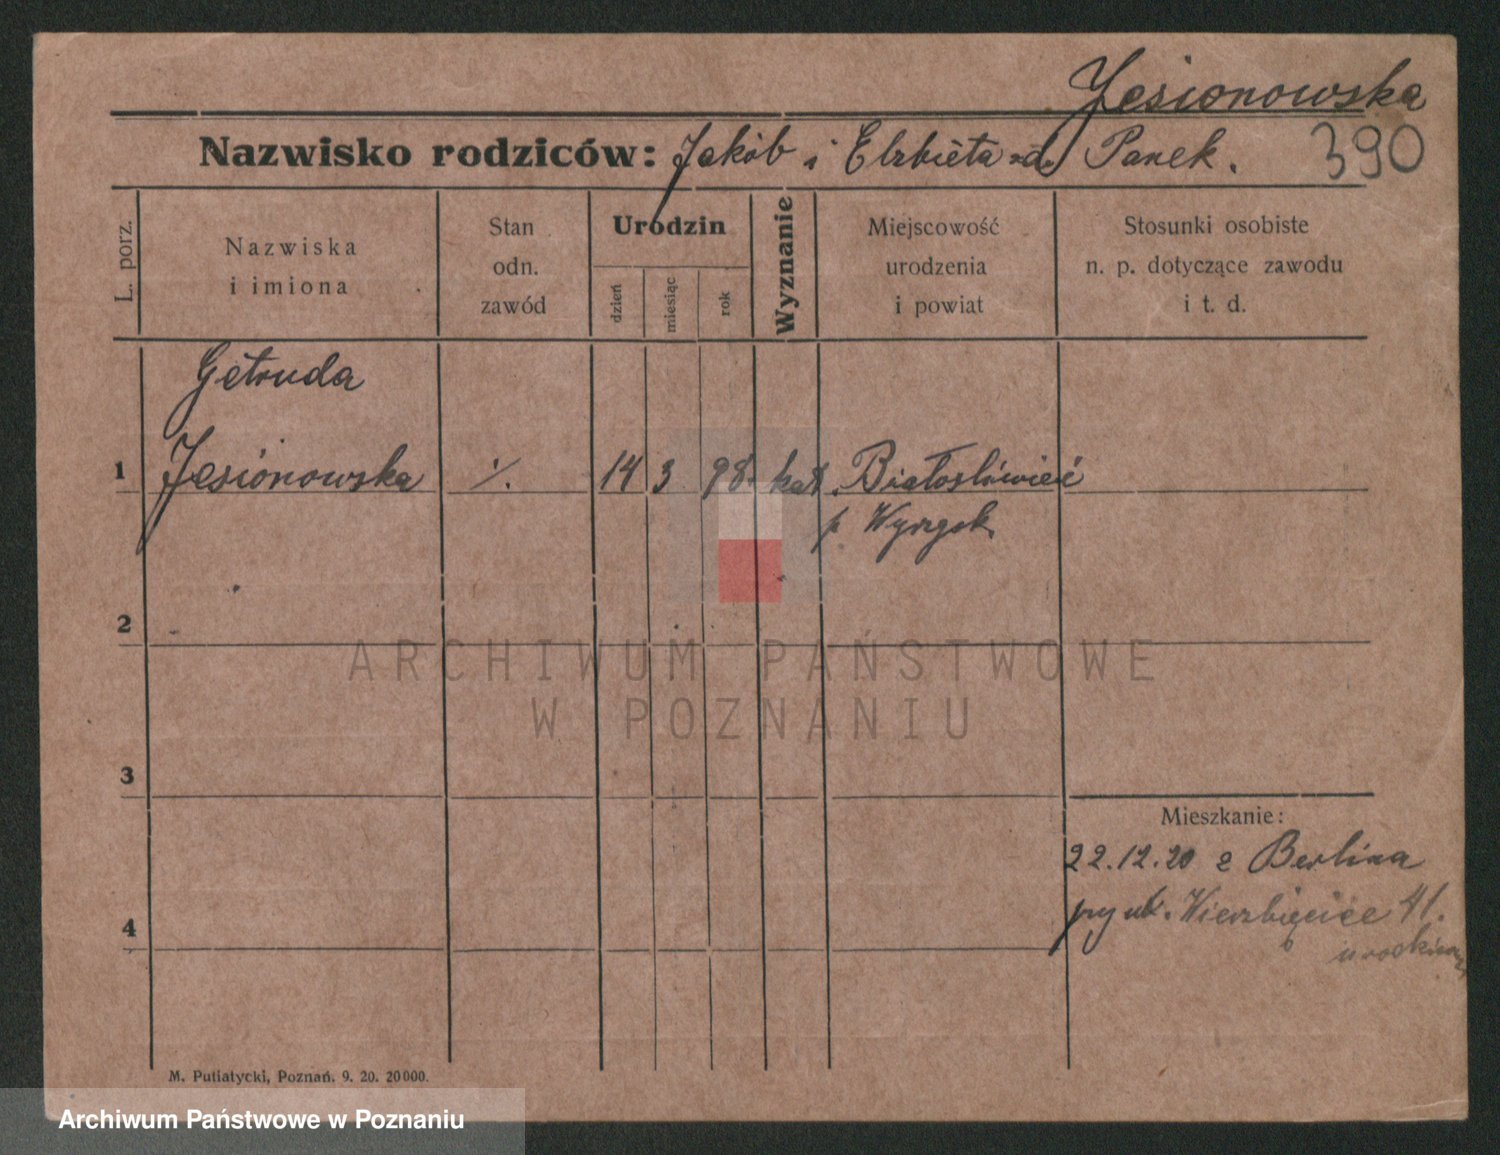 Jesionowska
Nazwisko rodziców: Jakób i Elzbieta zd. Panek.
390
L. porz.
Nazwiska
i imiona
Stan
odn.
zawód
Urodzin
dzień
miesiąc
rok
Wyznanie
Miejscowość
urodzenia
i powiat
Stosunki osobiste
n. p. dotyczące zawodu
i t. d.
Getruda
1 Jesionowska 14 3 98. kat. Białosliwieć
p. Wyrzysk
2
3
4
Mieszkanie:
22.12.20 z Berlina
przy ul. Wierzbięcice 41.
M. Putiatycki, Poznań. 9. 20. 20000.
ARCHIWUM PAŃSTWOWE
W POZNANIU
Archiwum Państwowe w Poznaniu